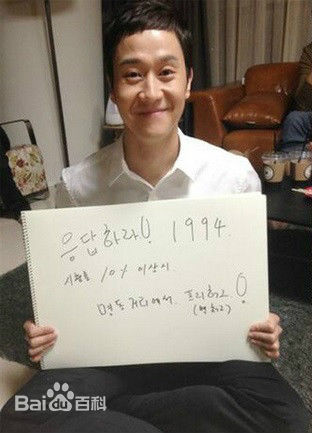 응답하라! 1994.
시청률 10% 이상시
명동 거리에서 프리허그!
(명허그)
Bai du 百科